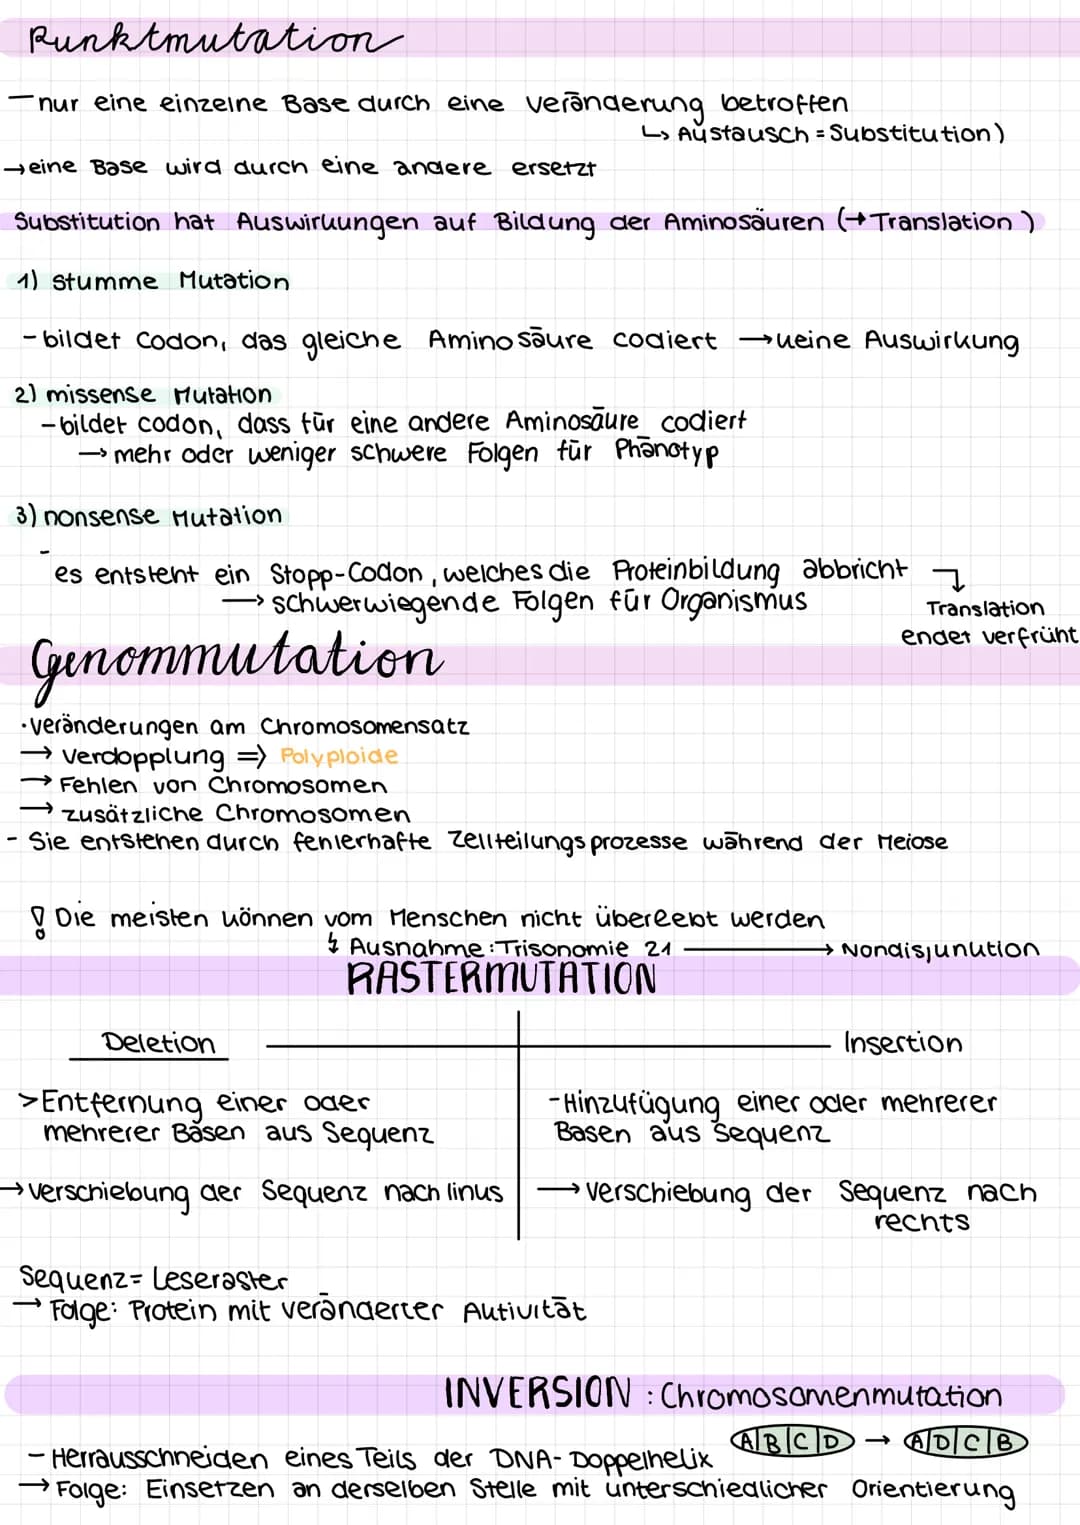 Punktmutation
- nur eine einzelne Base durch eine Veränderung betroffen
↳ Austausch = Substitution)
→ eine Base wird durch eine andere ersetzt
Substitution hat Auswirkungen auf Bildung der Aminosäuren (→ Translation)
1) stumme Mutation
- bildet Codon, das gleiche Aminosäure codiert → keine Auswirkung
2) missense Mutation
- bildet codon, dass für eine andere Aminosäure codiert
→ mehr oder weniger schwere Folgen für Phänotyp
3) nonsense Mutation
-
es entsteht ein Stopp-Codon, welches die Proteinbildung abbricht ↴
→ schwerwiegende Folgen für Organismus
Translation
endet verfrüht
Genommutation
· Veränderungen am Chromosomensatz
→ Verdopplung => Polyploide
→ Fehlen von Chromosomen
→ zusätzliche Chromosomen
- Sie entstehen durch fehlerhafte Zellteilungsprozesse während der Meiose
! Die meisten können vom Menschen nicht überlebt werden
↯ Ausnahme: Trisonomie 21 → Nondisjunktion
RASTERMUTATION
Deletion
Insertion
> Entfernung einer oder
mehrerer Basen aus Sequenz
→ Verschiebung der Sequenz nach links
- Hinzufügung einer oder mehrerer
Basen aus Sequenz
→ Verschiebung der Sequenz nach
rechts
Sequenz = Leseraster
→ Folge: Protein mit veränderter Aktivität
INVERSION : Chromosomenmutation
A|B|C|D → A|D|C|B
- Herrausschneiden eines Teils der DNA-Doppelhelix
→ Folge: Einsetzen an derselben Stelle mit unterschiedlicher Orientierung